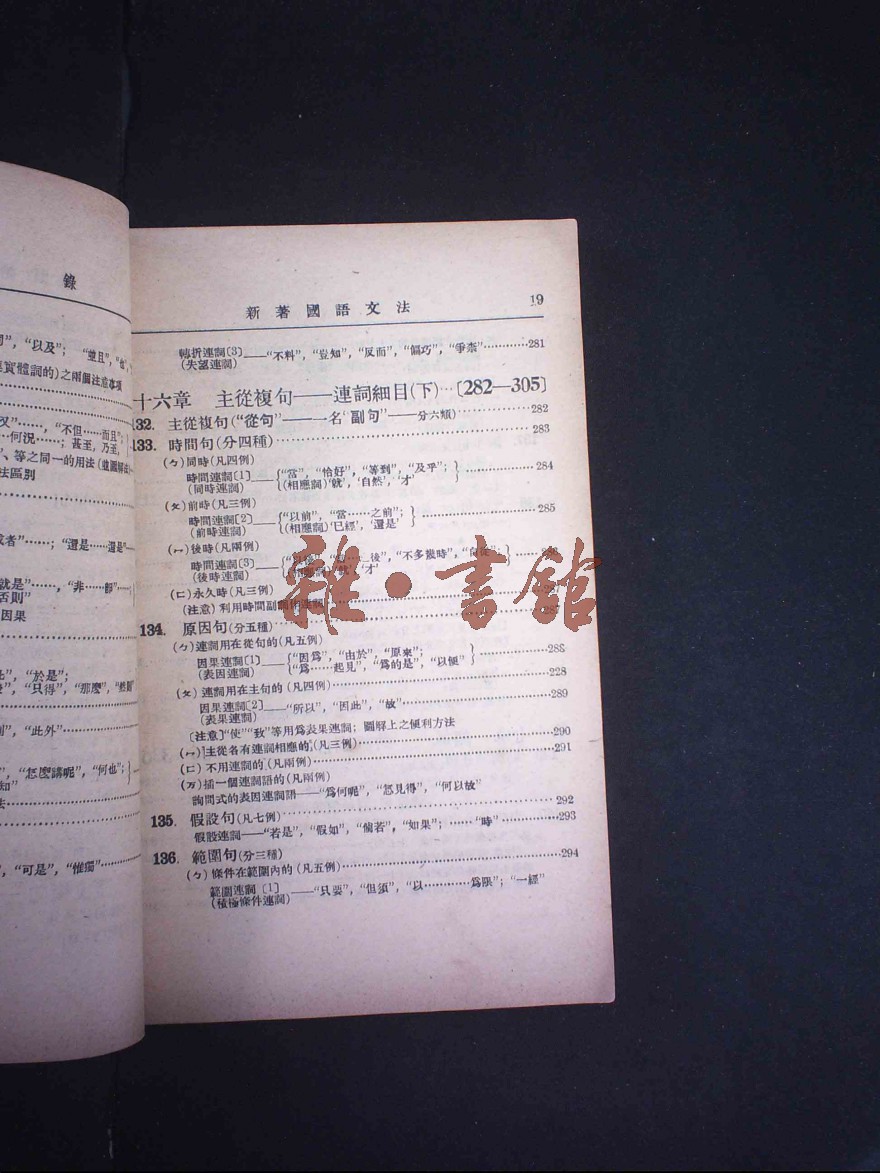 錄
”, “以及”; “並且”, “也”,
實體詞的)之兩個注意事項
又”……, “不但……而且”;
…何況……; 甚至, 乃至,
、等之同一的用法(並圖解法)
法區別
或者”……; “還是……還是”
就是”……, “非……卽”
否則”
因果
, “於是”;
, “只得”, “那麼”,
”, “此外”
, “怎麼講呢”, “何也”;
知”
法
, “可是”, “惟獨”
新著國語文法 19
轉折連詞[3]——“不料”, “豈知”, “反而”, “偏巧”, “爭柰”…………281
(失望連詞)
十六章 主從複句——連詞細目(下)…[282—305]
132. 主從複句(“從句”——一名“副句”——分六類)…………282
133. 時間句(分四種)…………283
(ㄅ)同時(凡四例)
時間連詞[1]——{“當”, “恰好”, “等到”, “及乎”;}…………284
(同時連詞) {(相應詞)‘就’, ‘自然’, ‘才’
(ㄆ)前時(凡三例)
時間連詞[2]——{“以前”, “當……之前”;}…………285
(前時連詞) {(相應詞)‘已經’, ‘還是’
(ㄇ)後時(凡兩例)
時間連詞[3]——後”, “不多幾時”,
(後時連詞) ‘才’
(ㄈ)永久時(凡三例)
(注意) 利用時間副詞作連詞…………287
134. 原因句(分五種)
(ㄅ)連詞用在從句的(凡五例)
因果連詞[1]——{“因爲”, “由於”, “原來”;}…………288
(表因連詞) {“爲……起見”, “爲的是”, “以便”
(ㄆ)連詞用在主句的(凡四例)…………228
因果連詞[2]——“所以”, “因此”, “故”…………289
(表果連詞)
[注意]“使”“致”等用爲表果連詞; 圖解上之便利方法
(ㄇ)主從各有連詞相應的(凡三例)…………290
(ㄈ)不用連詞的(凡兩例)…………291
(万)插一個連詞語的(凡兩例)
詢問式的表因連詞語——“爲何呢”, “怎見得”, “何以故”
135. 假設句(凡七例)…………292
假設連詞——“若是”, “假如”, “倘若”, “如果”; ……“時”…………293
136. 範圍句(分三種)
(ㄅ)條件在範圍內的(凡五例)…………294
範圍連詞[1]——“只要”, “但須”, “以…………爲限”; “一經”
(積極條件連詞)
雜·書館